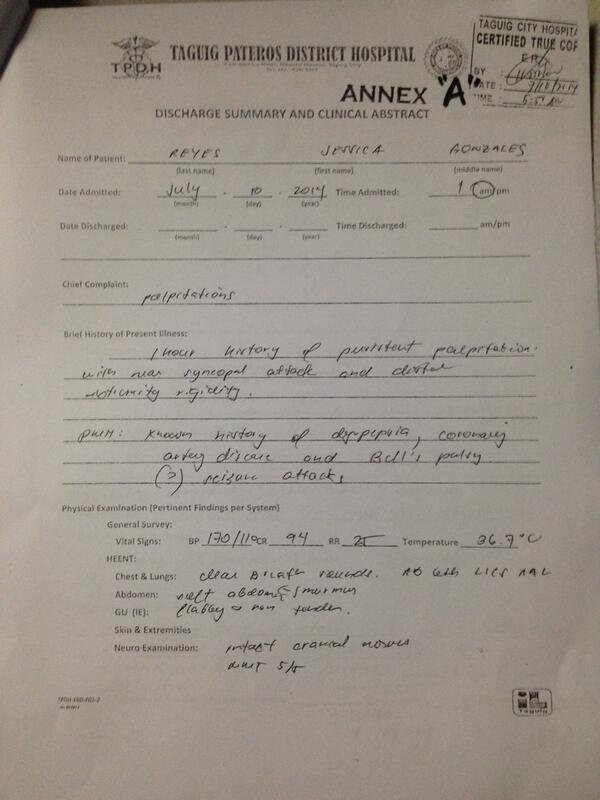 TAGUIG CITY HOSPITA
CERTIFIED TRUE COP
BY :
DATE :
TIME :
TPDH
TAGUIG PATEROS DISTRICT HOSPITAL
ANNEX "A"
DISCHARGE SUMMARY AND CLINICAL ABSTRACT
Name of Patient: REYES JESSICA GONZALES
(last name) (first name) (middle name)
Date Admitted: July - 10 - 2014 Time Admitted: 1 am/pm
(month) (day) (year)
Date Discharged: - - Time Discharged: am/pm
(month) (day) (year)
Chief Complaint:
palpitations
Brief History of Present Illness:
1 hour history of persistent palpitation
with near syncopal attack and distal
extremity rigidity.
PMH: Known history of dyspepsia, coronary
artery disease and Bell's palsy.
(?) seizure attacks
Physical Examination (Pertinent Findings per System)
General Survey:
Vital Signs: BP 170/110 CR 94 RR 25 Temperature 36.7°C
HEENT:
Chest & Lungs: clear breath sounds. AB 6th LICS AAL
Abdomen: soft abdomen murmur
GU (IE): flabby non tender.
Skin & Extremities
Neuro Examination: intact cranial nerves
MMT 5/5
TPDH-ERD-F02-2
Taguig